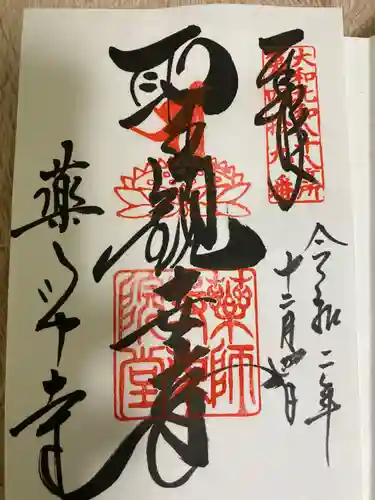 奉拝
大和北部八十八ヶ所
令和二年
十二月四日
聖観世音
薬師
院堂
薬師寺